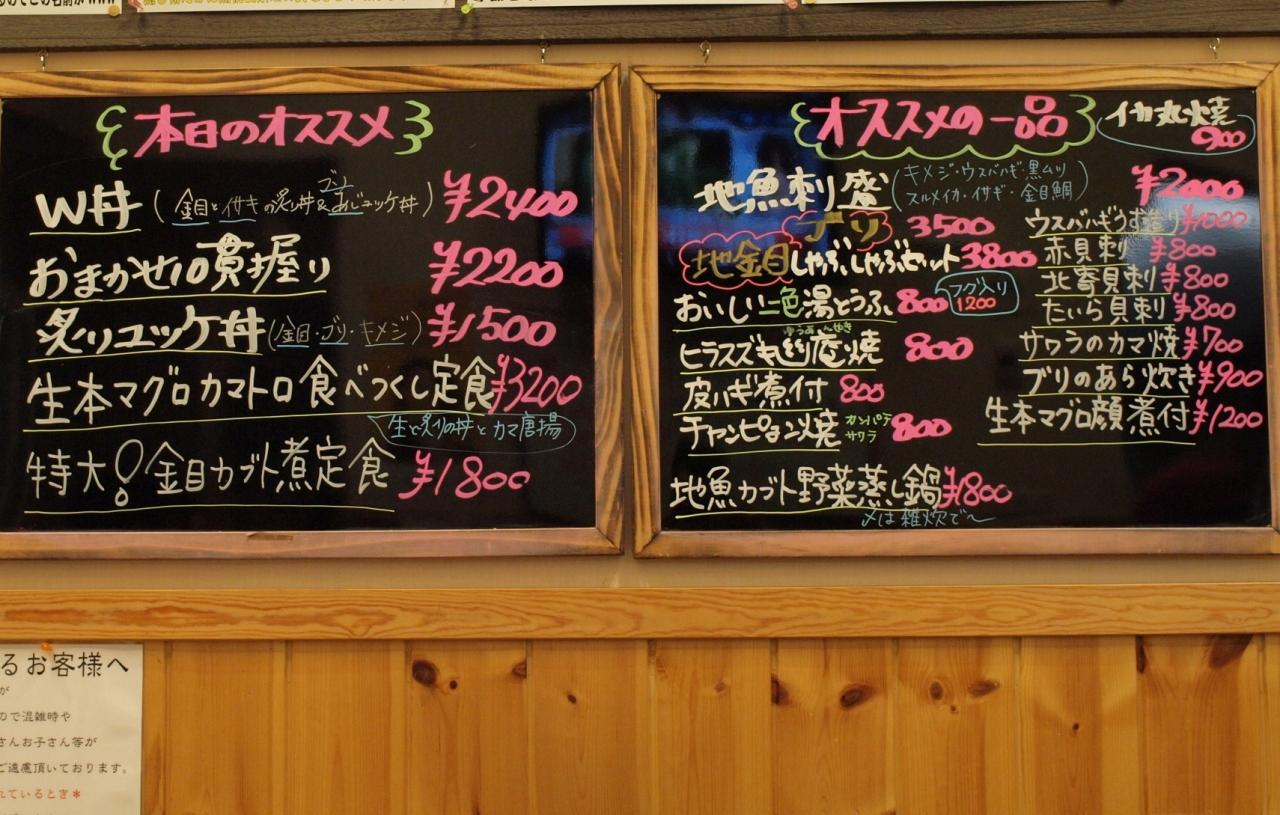 本日のオススメ
W丼 (金目とイサキの炙り丼&あじユッケ丼) ¥2400
ブリ
おまかせ10貫握り ¥2200
炙りユッケ丼(金目・ブリ・キメジ) ¥1500
生本マグロカマトロ食べつくし定食 ¥3200
生と炙りの丼とカマ唐揚
特大!金目カブト煮定食 ¥1800
オススメの一品
イカ丸焼
900
地魚刺盛 (キメジ・ウスバハギ・黒ムツ ¥2000
スルメイカ・イサギ・金目鯛)
ブリ 3500
地金目しゃぶしゃぶセット 3800
おいしい一色湯どうふ 800
フグ入り
1200
ゆうあんやき
ヒラスズキ幽庵焼 800
皮ハギ煮付 800
チャンピオン焼 カンパチ 800
サワラ
地魚カブト野菜蒸し鍋 ¥1800
〆は雑炊で〜
ウスバハギうす造り ¥1000
赤貝刺 ¥800
北寄貝刺 ¥800
たいら貝刺 ¥800
サワラのカマ焼 ¥700
ブリのあら炊き ¥900
生本マグロ顔煮付 ¥1200
るお客様へ
が
ので混雑時や
さんお子さん等が
ご遠慮頂いております。
れているとき*